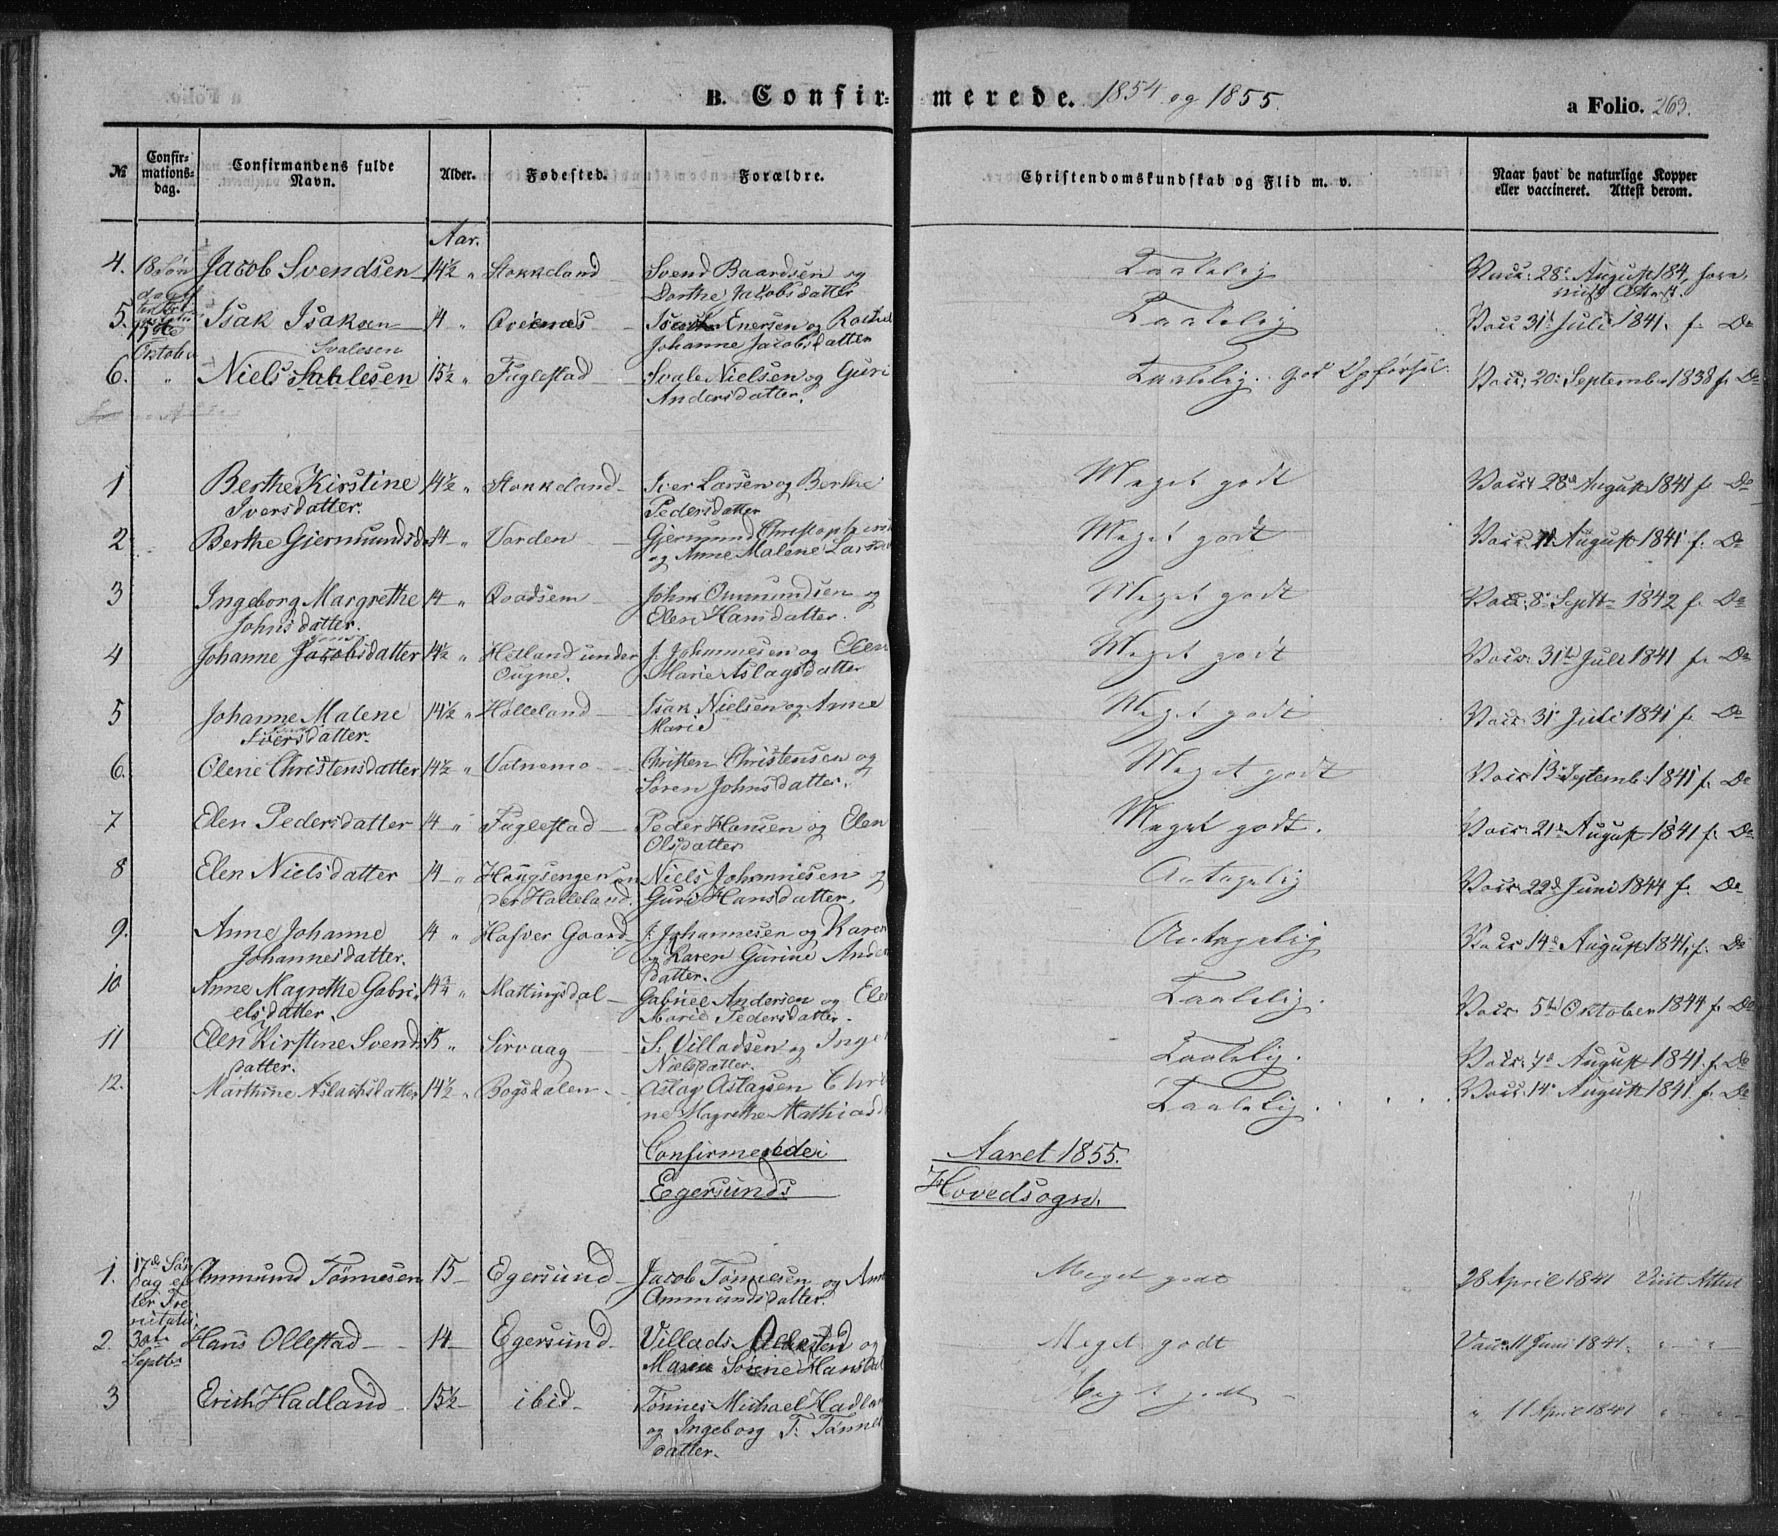 B. Confirmerede. 1854 og 1855. a Folio. 263.
№ Confirmationsdag. Confirmandens fulde Navn. Alder. Fødested. Forældre. Christendomskundskab og Flid m. v. Naar havt de naturlige Kopper eller vaccineret. Attest derom.
Aar.
4. 18 Søn Jacob Svendsen 14½ " Stokkeland Svend Baardsen og Taalelig Vacc: 28 August 184
Dorthe Jakobsdatter
5. 15de Isak Isaksen 14 " Isak Enersen og Taalelig Vacc 31 Juli 1841. f. Do
Oktober Johanne Jacobsdatter
Svalesen
6. " Niels 15½ " Fuglestad Svale Nielsen og Guri Taalelig. god Opførsel. Vacc: 20 September 1838 f. Do
Andersdatter.
1 Berthe Kirstine 14½ " Stokkeland Iver Larsen og Berthe Meget godt Vacc 28 August 1841 f. Do
Iversdatter. Pedersdatter
2 Berthe Gjermundsda 14 " Varden Gjermund Meget godt Vacc August 1841 f. Do
og Anne Malene
3 Ingeborg Margrethe 14 " Qvadsem John Ommundsen og Meget godt Vacc 8 Septr 1842 f. Do
Johnsdatter. Elen Hansdatter.
4 Johanne 14½ " Hetland under J. Johannesen og Elen Meget godt Vacc 31 Juli 1841 f. Do
Ougne. Marie Aslagsdatter
5 Johanne Malene 14½ " Hølleland Isak Nielsen og Anne Meget godt Vacc 31 Juli 1841 f. Do
Marie
6. Olene Christensdatter 14½ " Vatnemo Christen Christensen og Meget godt Vacc 13 Septemb: 1841 f. Do
Søren Johnsdatter.
7 Elen Pedersdatter 14 " Fuglestad Peder Hansen og Elen Meget godt. Vacc: 21 August 1841 f. Do
Olsdatter
8 Elen Nielsdatter 14 " Haugsengen un Niels Johannesen og Antagelig Vacc: 22d Juni 1844 f. Do
der Hølleland. Guri Hansdatter.
9. Anne Johanne 14 " Hafver Gaard J. Johannesen og Karen Antagelig Vacc 14 August 1841 f. Do
Johannesdatter. og Karen Gurine
datter.
10 Anne Magrethe Gabri 14¾ " Mattingsdal Gabriel Andersen og Taalelig. Vacc 5te Oktober 1844 f. Do
elsdatter. Marie Pedersdatter.
11 Elen Kirstine Svends 15 " Sirvaag S. Villadsen og Inge Taalelig. Vacc: 7 August 1841. f. Do
datter. Nielsdatter.
12. Marthine Aslachsdatter 14½ " Bogsdalen Aslag Aslagsen Chri Taalelig Vacc: 14 August 1841. f. Do
ne Magrethe Mathiasd
Confirmerede i Aaret 1855.
Egersunds Hovedsogn.
1. 17de Søn Ommund Tønnesen 15 Egersund Jacob Tønnesen og Ann Meget godt 28 April 1841 Viist Attest
dag ef Ommundsdatter.
ter Tre
nitatis.
2. 30te Hans Ollestad 14 Egersund Villads og Meget godt Vacc: 11 Juni 1841. " "
Septbr Marie Sorine Hansdat
3 Erich Hadland 15½ ibid Tønnes Michael Hadla Meget godt " 11 April 1841 " "
og Ingeborg T. Tønnes
datter.